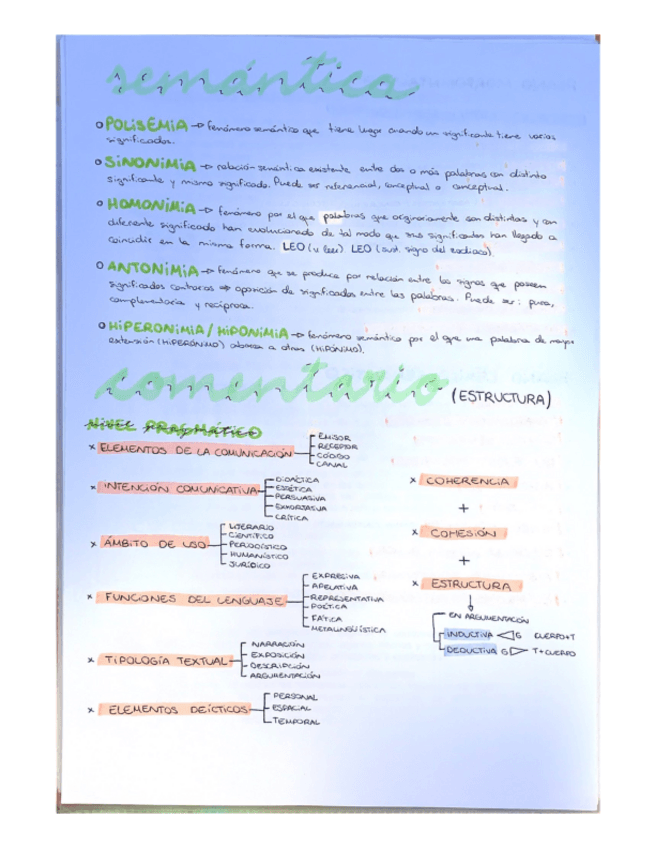 semántica
POLISEMIA → fenómeno semántico que tiene lugar cuando un significante tiene varios
significados.
SINONIMIA → relación semántica existente entre dos o más palabras con distinto
significante y mismo significado. Puede ser referencial, conceptual o conceptual.
HOMONIMIA → fenómeno por el que palabras que originariamente son distintas y con
diferente significado han evolucionado de tal modo que sus significantes han llegado a
coincidir en la misma forma. LEO (v. leer) LEO (sust. signo del zodiaco).
ANTONIMIA → fenómeno que se produce por relación entre los signos que poseen
significados contrarios ⇒ oposición de significados entre las palabras. Puede ser: pura,
complementaria y recíproca.
HIPERONIMIA / HIPONIMIA → fenómeno semántico por el que una palabra de mayor
extensión (HIPERÓNIMO) abarca a otras (HIPÓNIMO).
comentario (ESTRUCTURA)
NIVEL PRAGMÁTICO
x ELEMENTOS DE LA COMUNICACIÓN
EMISOR
RECEPTOR
CÓDIGO
CANAL
x INTENCIÓN COMUNICATIVA
DIDÁCTICA
ESTÉTICA
PERSUASIVA
EXHORTATIVA
CRÍTICA
x ÁMBITO DE USO
LITERARIO
CIENTÍFICO
PERIODÍSTICO
HUMANÍSTICO
JURÍDICO
x FUNCIONES DEL LENGUAJE
EXPRESIVA
APELATIVA
REPRESENTATIVA
POÉTICA
FÁTICA
METALINGÜÍSTICA
x TIPOLOGÍA TEXTUAL
NARRACIÓN
EXPOSICIÓN
DESCRIPCIÓN
ARGUMENTACIÓN
x ELEMENTOS DEÍCTICOS
PERSONAL
ESPACIAL
TEMPORAL
x COHERENCIA
+
x COHESIÓN
+
x ESTRUCTURA
EN ARGUMENTACIÓN
INDUCTIVA ◁ G CUERPO+T
DEDUCTIVA G ▷ T+CUERPO